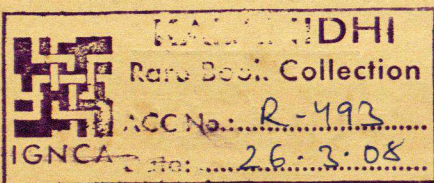 KALANIDHI
Rare Book Collection
ACC No.: R-493
IGNCA Date: 26.3.08